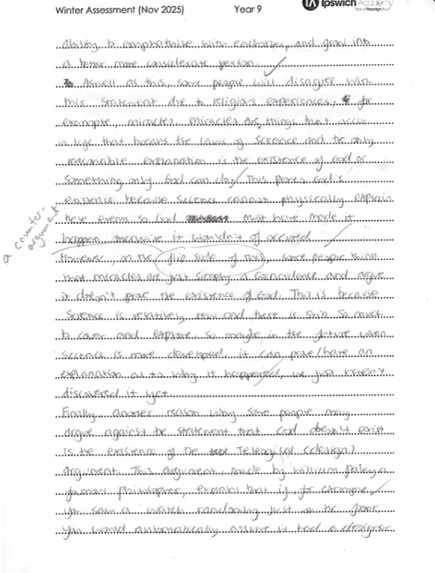 Winter Assessment (Nov 2025) Year 9 Ipswich Academy
ability to empathise with eachother, and grow into
a better more considerate person.
Aswell as this, some people will disagree with
this statement due to religious experiences, for
example, miracles. Miracles are things that occur
in life that breaks the laws of science and the only
reasonable explanation is the existence of God or
something only God can do. This proves God's
existence because science cannot physically explain
these events so God must have made it
happen otherwise it wouldn't of occured.
a counter-argument
However, on the flip side of this, some people think
that miracles are just simply a coincidence and argue
it doesn't prove the existence of God. This is because
science is relatively new and there is still so much
to cover and explore, so maybe in the future when
science is more developed, it can prove/have an
explanation as to why it happened, we just haven't
discovered it yet.
Finally, another reason why some people may
argue against the statement that God doesn't exist
is the existence of the (design)
argument. This argument, made by William Paley a
philosopher, explains that if, for example,
you saw a watch randomly just on the floor,
you would automatically assume it had a designer